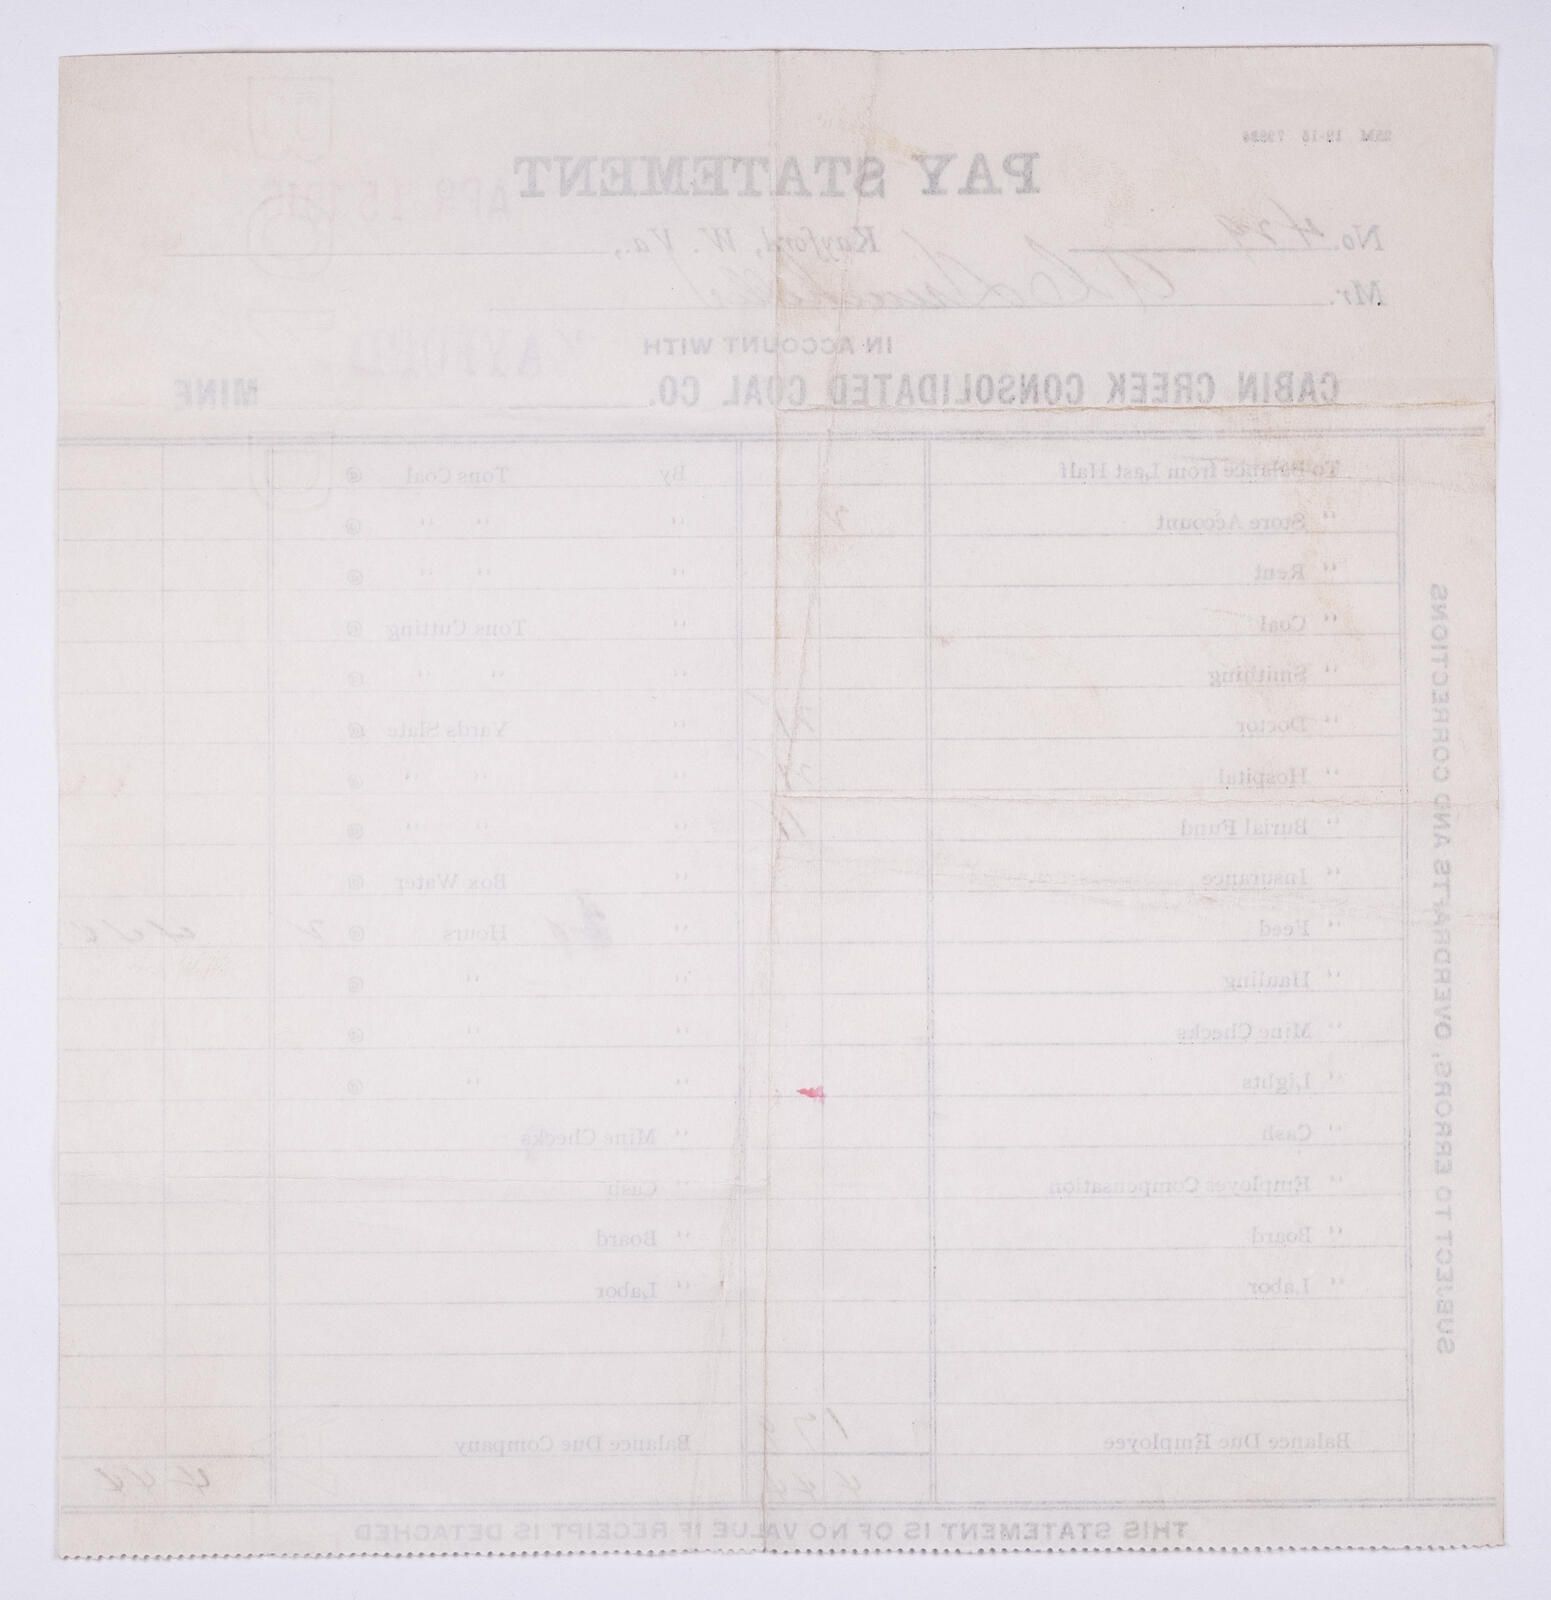 PAY STATEMENT
APR 15 1916
No. 429 Kayford, W. Va.,
Mr.
IN ACCOUNT WITH
KAYFORD
CABIN CREEK CONSOLIDATED COAL CO. MINE
To Balance from Last Half By Tons Coal @
" Store Account " " " @
" Rent " " " @
" Coal " Tons Cutting @
" Smithing " " " @
" Doctor " Yards Slate @
" Hospital " " " @
" Burial Fund " " " @
" Insurance " Box Water @
" Feed " Hours @
" Hauling " " @
" Mine Checks " " @
" Lights " " @
" Cash " Mine Checks
" Employes Compensation " Cash
" Board " Board
" Labor " Labor
Balance Due Employee Balance Due Company
THIS STATEMENT IS OF NO VALUE IF RECEIPT IS DETACHED
SUBJECT TO ERRORS, OVERDRAFTS AND CORRECTIONS